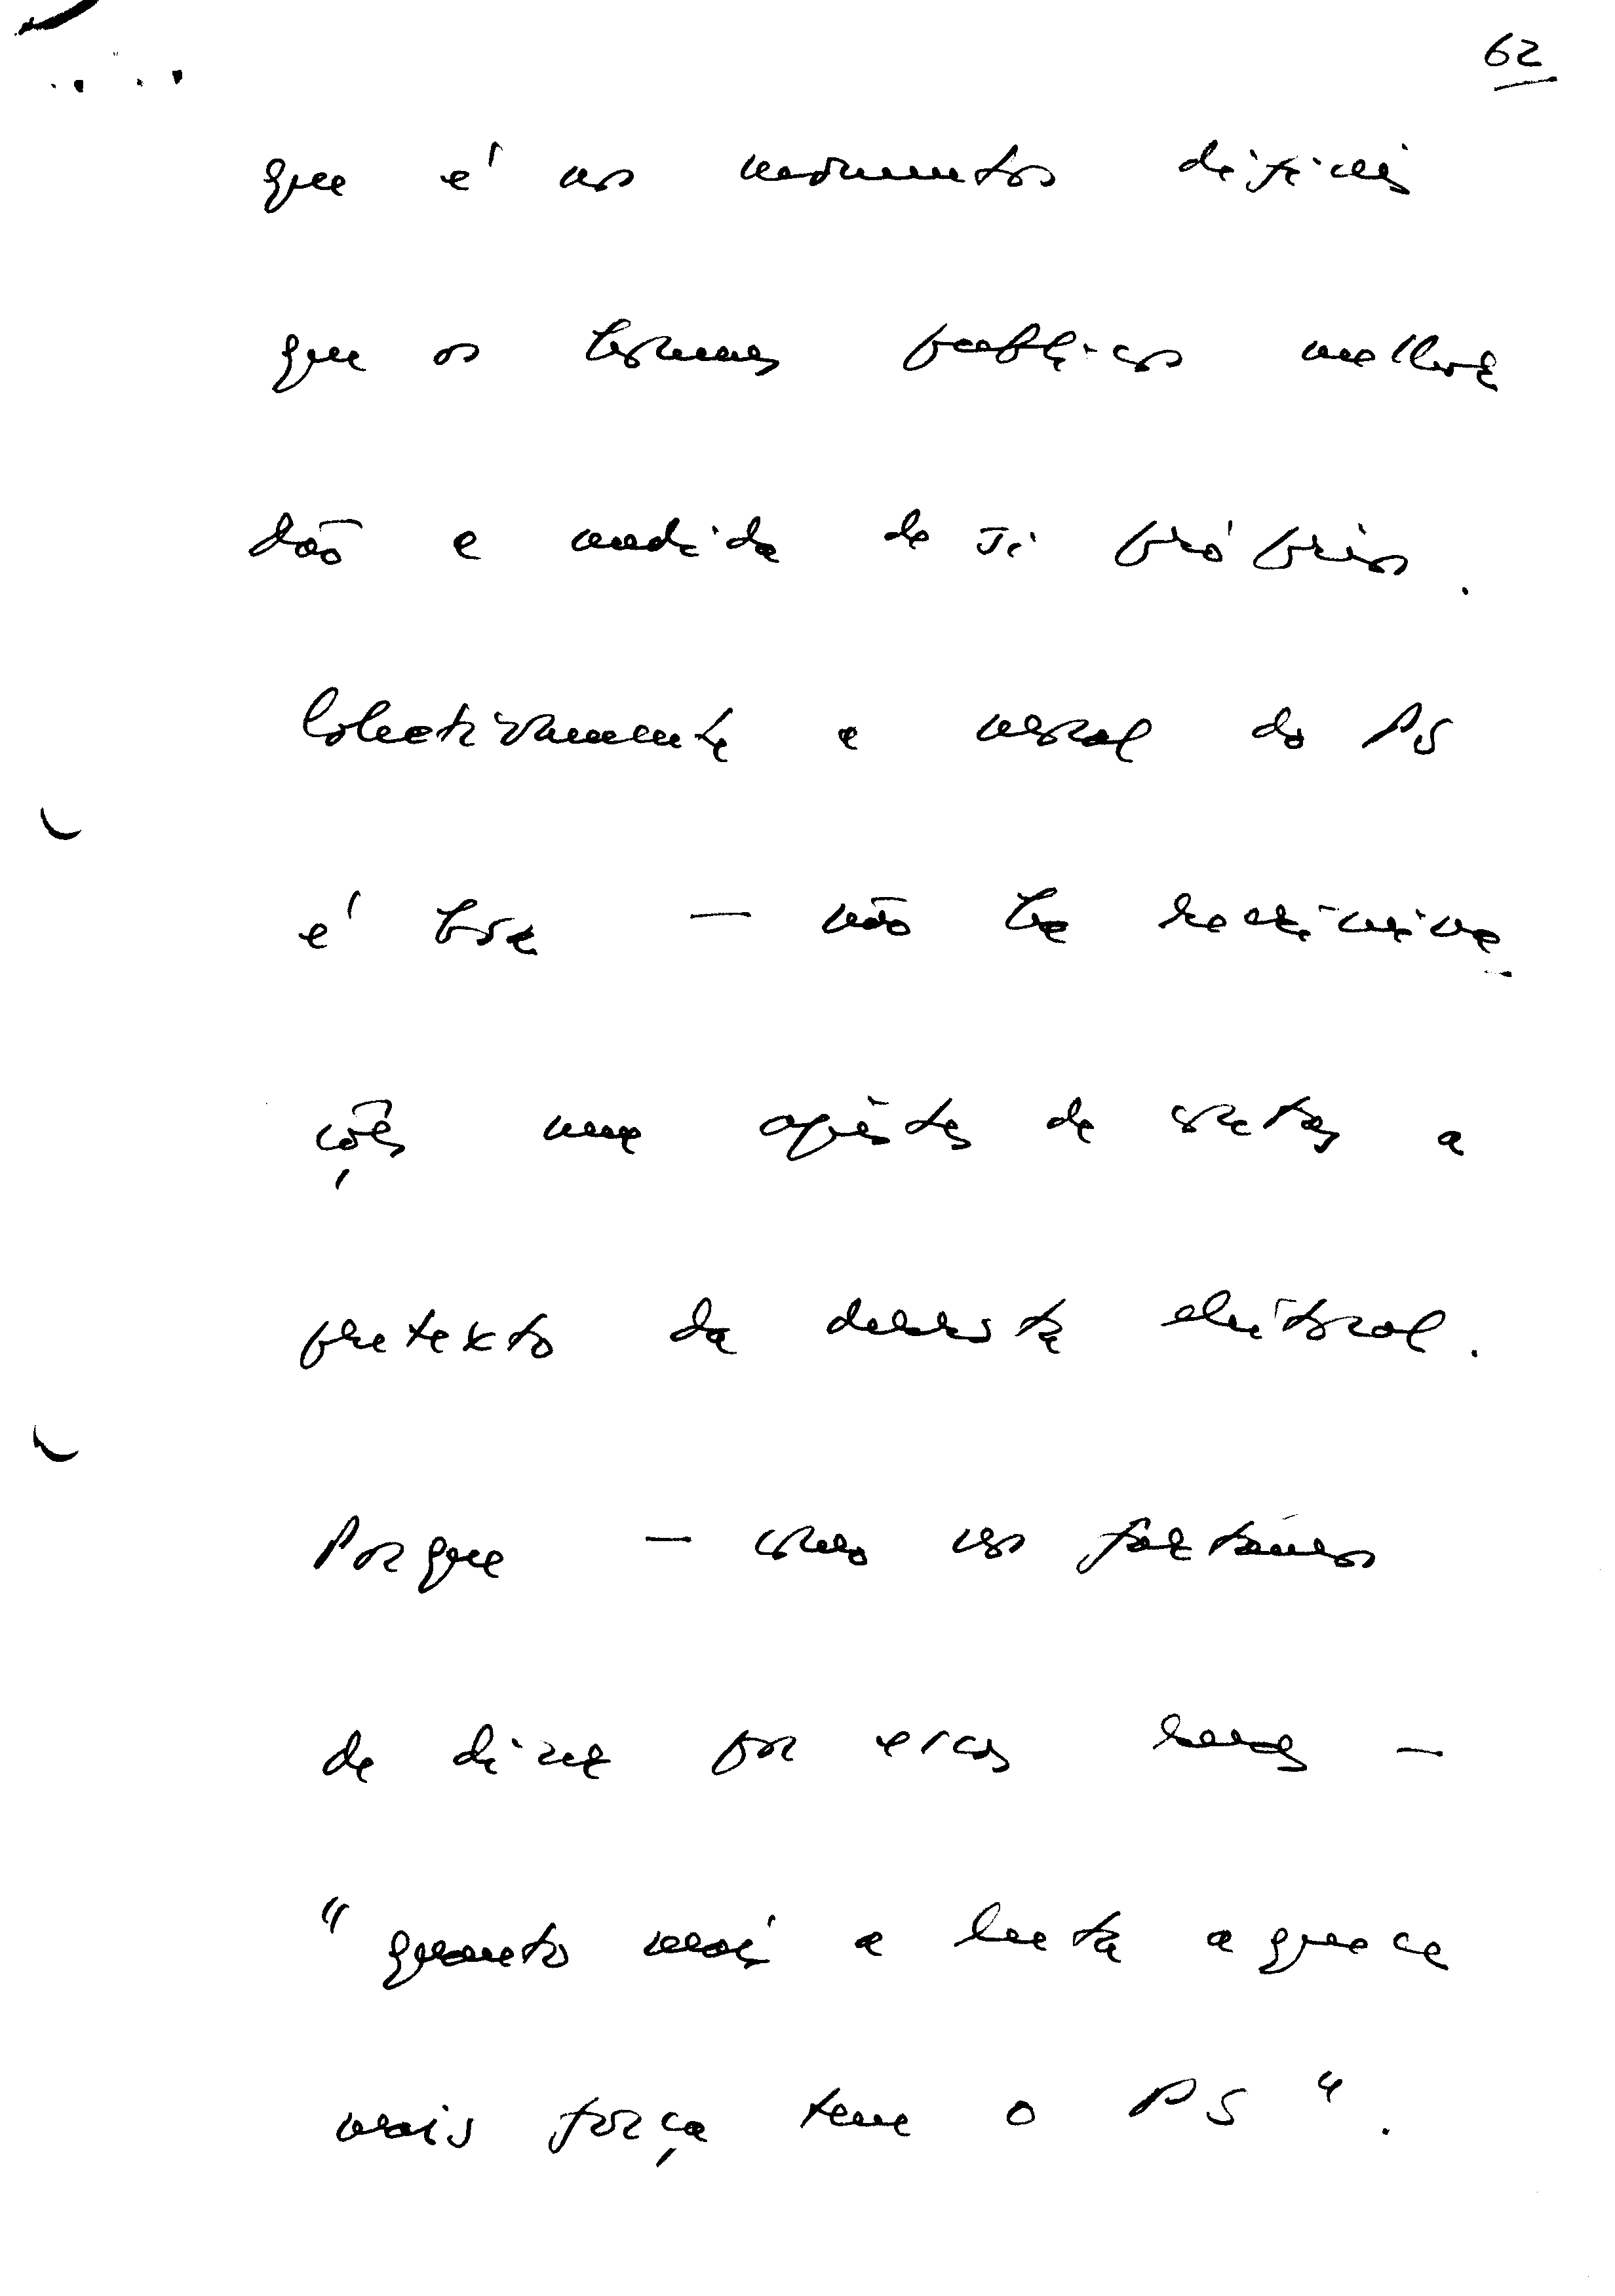 62
que é nos momentos difíceis
que os homens públicos melhor
dão a medida de si próprios.
Colectivamente a moral do PS
é boa — não há recrimina-
ções nem ajustes de contas a
pretexto da derrota eleitoral.
Porque — como nos fartámos
de dizer por essas ruas —
"quanto mais a luta aquece
mais força tem o PS".